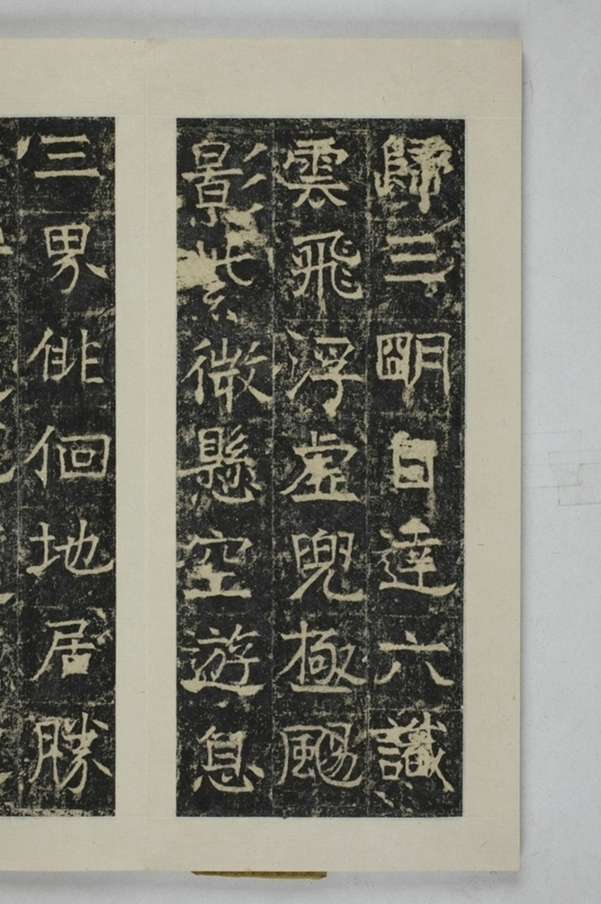 歸三明自達六識
雲飛浮虛兜極颺
影紫微懸空遊息
三界俳佪地居勝